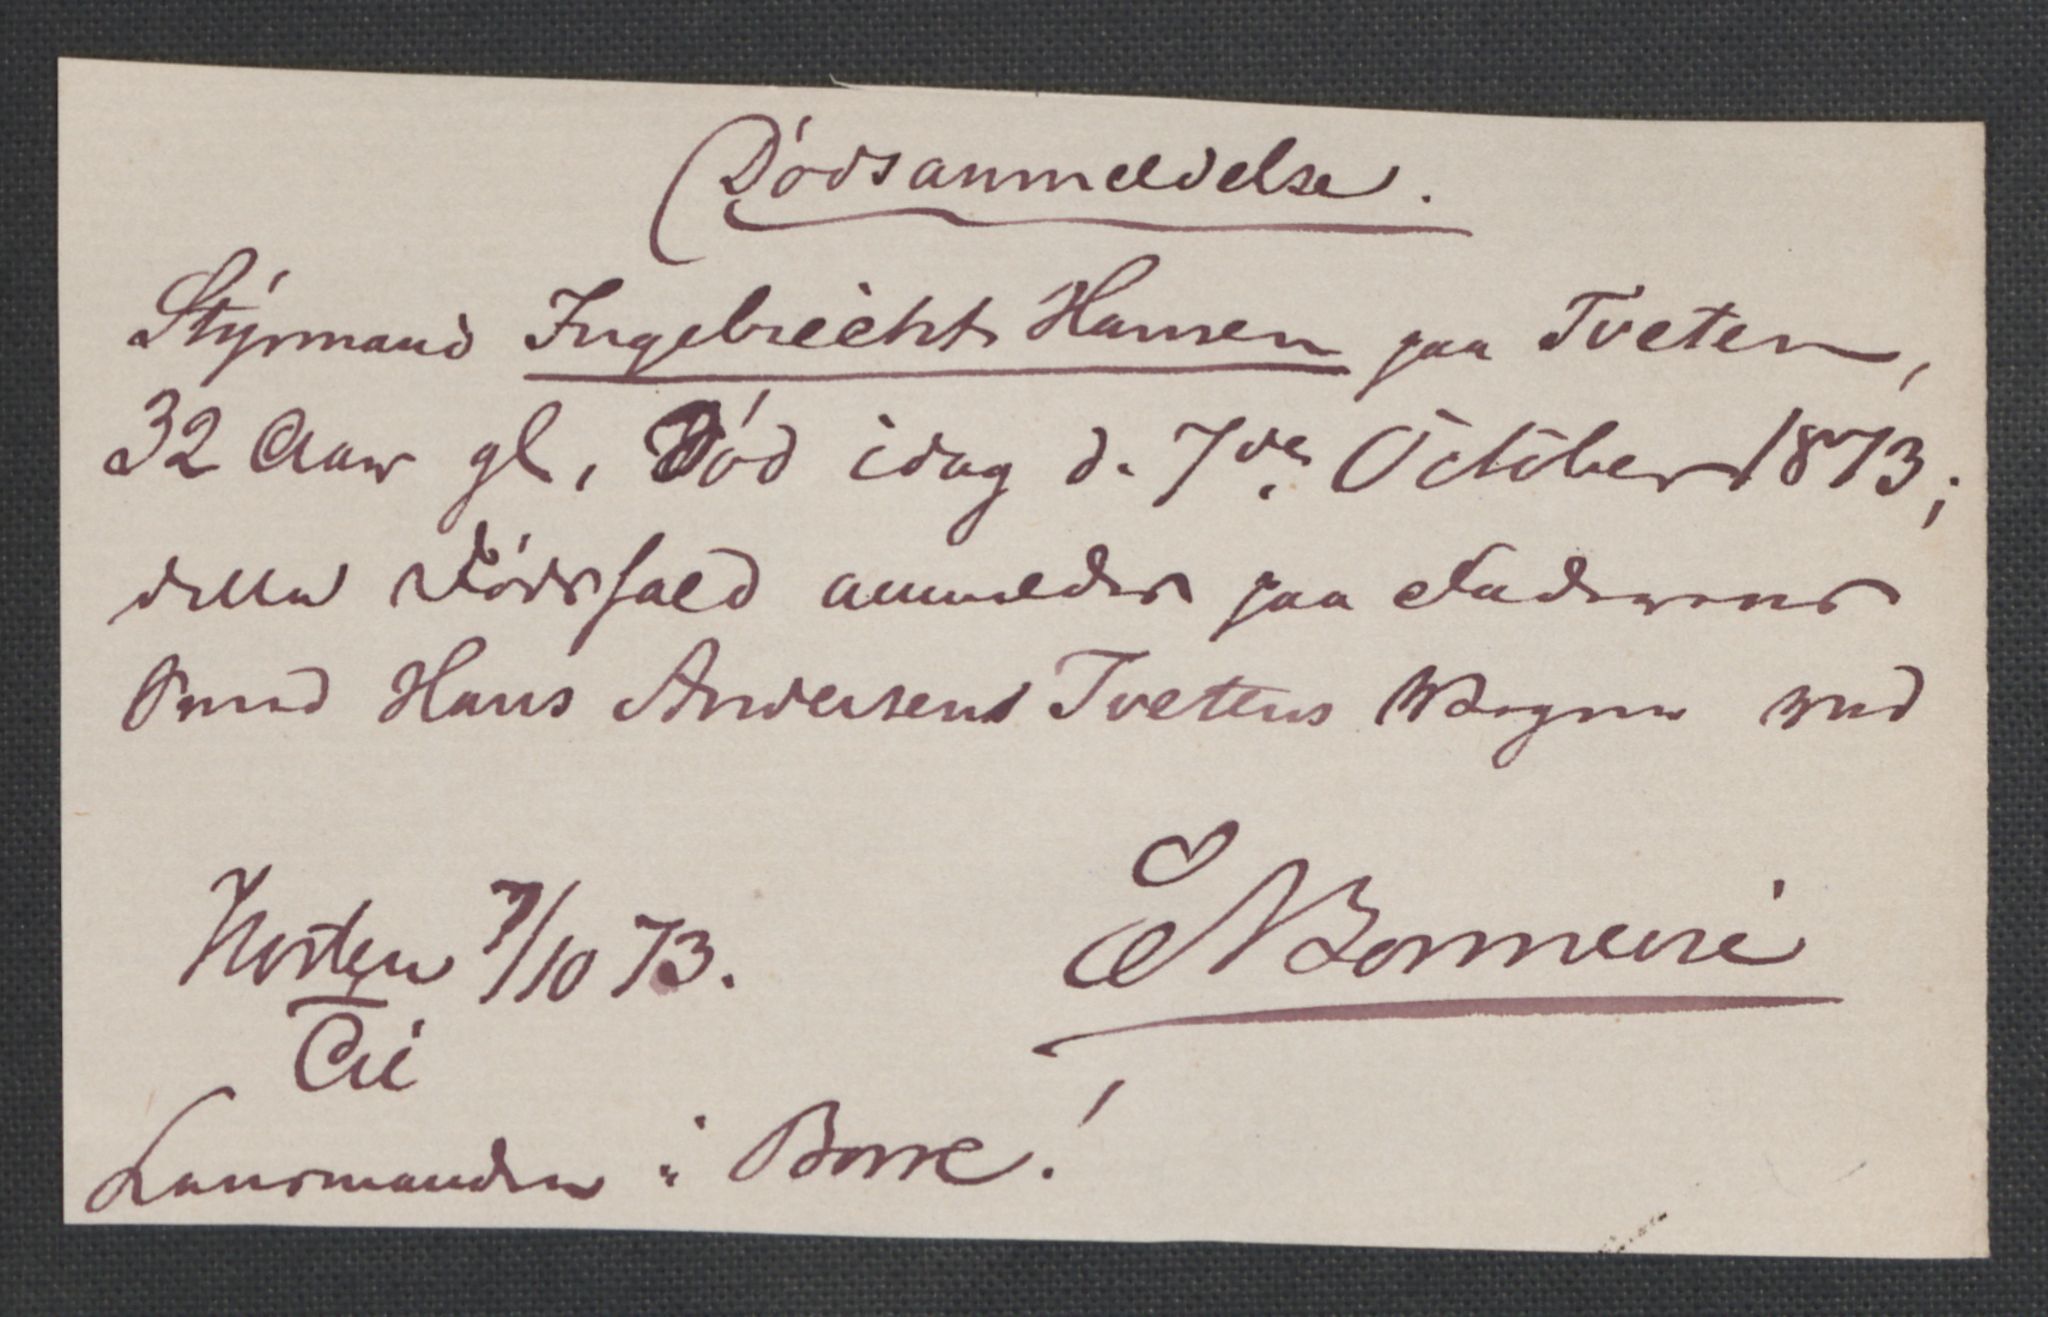 Dødsanmeldelse.
Styrmand Ingebrecht Hansen paa Tveten,
32 Aar gl, Død idag d. 7de October 1873;
dette Dødsfald anmeldes paa Faderens
Hans Andersens Tvetens Vegne ved
Horten 7/10 73.
Til
Lensmanden i Borre!